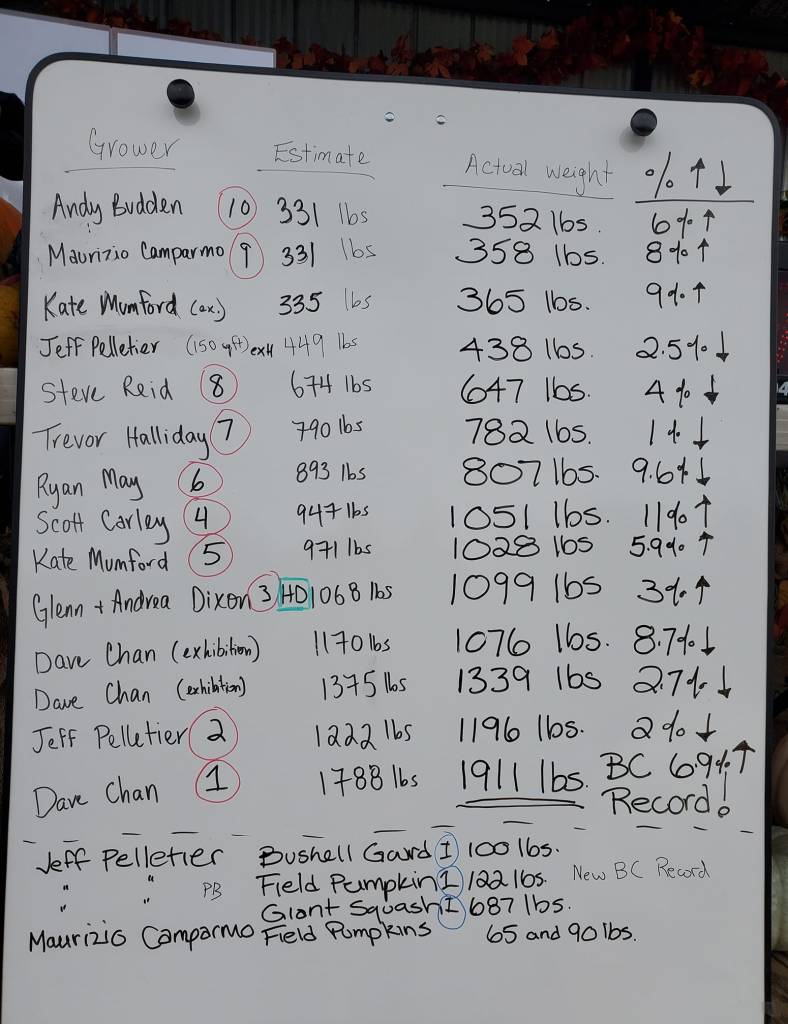 Grower Estimate Actual weight % ↑↓
Andy Budden 10 331 lbs 352 lbs. 6% ↑
Maurizio Camparmo 9 331 lbs 358 lbs. 8% ↑
Kate Mumford (ex.) 335 lbs 365 lbs. 9% ↑
Jeff Pelletier (150 sqft) exH 449 lbs 438 lbs. 2.5% ↓
Steve Reid 8 674 lbs 647 lbs. 4% ↓
Trevor Halliday 7 790 lbs 782 lbs. 1% ↓
Ryan May 6 893 lbs 807 lbs. 9.6% ↓
Scott Carley 4 947 lbs 1051 lbs. 11% ↑
Kate Mumford 5 971 lbs 1028 lbs 5.9% ↑
Glenn + Andrea Dixon 3 HD 1068 lbs 1099 lbs 3% ↑
Dave Chan (exhibition) 1170 lbs 1076 lbs. 8.7% ↓
Dave Chan (exhibtion) 1375 lbs 1339 lbs 2.7% ↓
Jeff Pelletier 2 1222 lbs 1196 lbs. 2% ↓
Dave Chan 1 1788 lbs 1911 lbs. BC 6.9% ↑
Record!
Jeff Pelletier Bushell Gourd 1 100 lbs.
" " PB Field Pumpkin 1 122 lbs. New BC Record
" " Giant Squash 1 687 lbs.
Maurizio Camparmo Field Pumpkins 65 and 90 lbs.